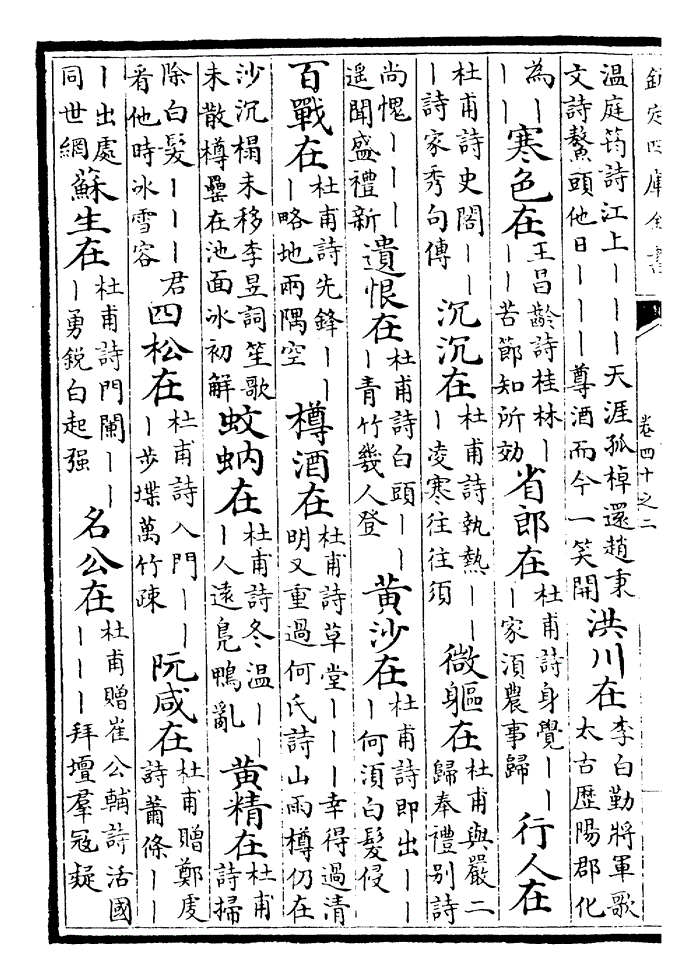 欽定四庫全書 卷四十之二
温庭筠詩江上丨丨丨天涯孤棹還趙秉文詩鰲頭他日丨丨丨尊酒而今一笑開洪川在李白勤將軍歌太古歷陽郡化
為丨丨丨寒色在王昌齡詩桂林丨丨丨苦節知所効省郎在杜甫詩身覺丨丨丨家須農事歸行人在
杜甫詩史閣丨丨丨詩家秀句傳沉沉在杜甫詩執熱丨丨丨凌寒往往須微軀在杜甫與嚴二歸奉禮别詩
尚愧丨丨丨遥聞盛禮新遺恨在杜甫詩白頭丨丨丨青竹幾人登黄沙在杜甫詩即出丨丨丨何須白髮侵
百戰在杜甫詩先鋒丨丨丨略地兩隅空樽酒在杜甫詩草堂丨丨丨幸得過清明又重過何氏詩山雨樽仍在
沙沉榻未移李昱詞笙歌未散樽罍在池面冰初解蚊蚋在杜甫詩冬温丨丨丨人遠鳬鴨亂黄精在杜甫詩掃
除白髮丨丨丨君看他時冰雪容四松在杜甫詩入門丨丨丨步堞萬竹疎阮咸在杜甫贈鄭䖍詩蕭條丨丨
丨出處同世網蘇生在杜甫詩門闌丨丨丨勇鋭白起强名公在杜甫贈崔公輔詩活國丨丨丨拜壇羣冦疑